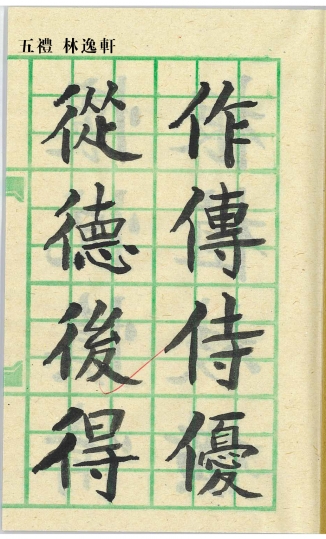 五禮 林逸軒
作傳侍優
從德後得